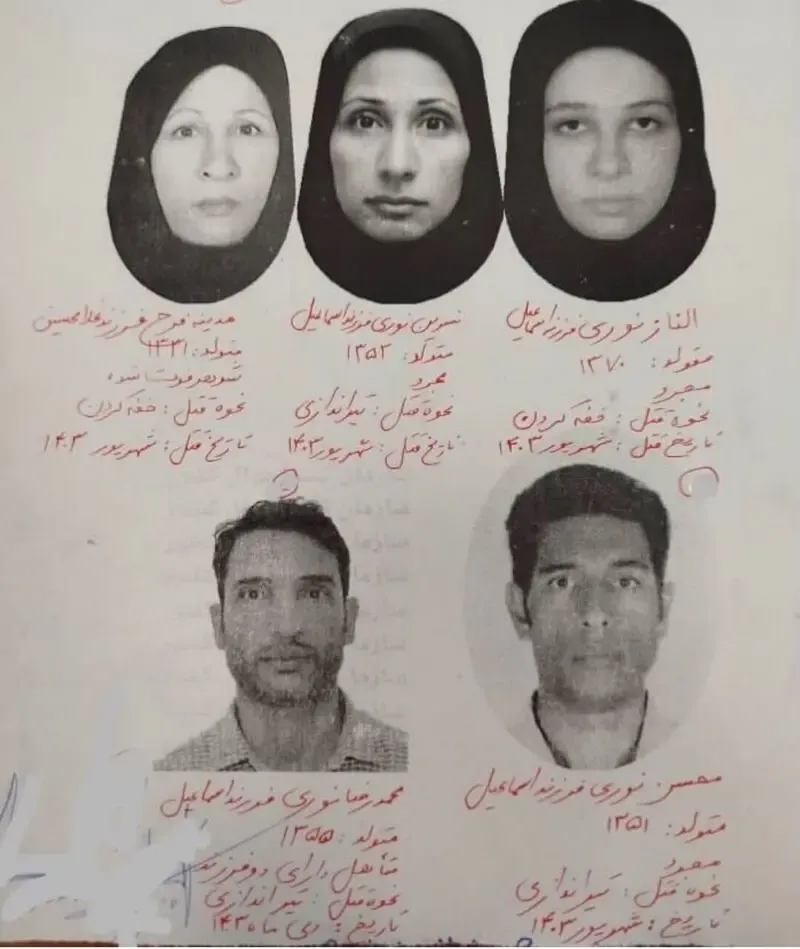 الناز نوری فرزند اسماعیل
متولد: ۱۳۷۰
مجرد
نحوه قتل: خفه کردن
تاریخ قتل: شهریور ۱۴۰۳
نسرین نوری فرزند اسماعیل
متولد: ۱۳۵۲
مجرد
نحوه قتل: تیراندازی
تاریخ قتل: شهریور ۱۴۰۳
مدینه فرزند غلامحسین
متولد: ۱۳۳۱
شوهر فوت شده
نحوه قتل: خفه کردن
تاریخ قتل: شهریور ۱۴۰۳
محسن نوری فرزند اسماعیل
متولد: ۱۳۵۱
مجرد
نحوه قتل: تیراندازی
تاریخ: شهریور ۱۴۰۳
محمدرضا نوری فرزند اسماعیل
متولد: ۱۳۵۵
متأهل دارای دو فرزند
نحوه قتل: تیراندازی
تاریخ: دی ماه